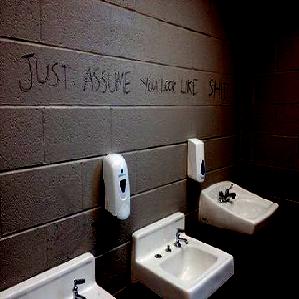 JUST ASSUME YOU LOOK LIKE SHIT